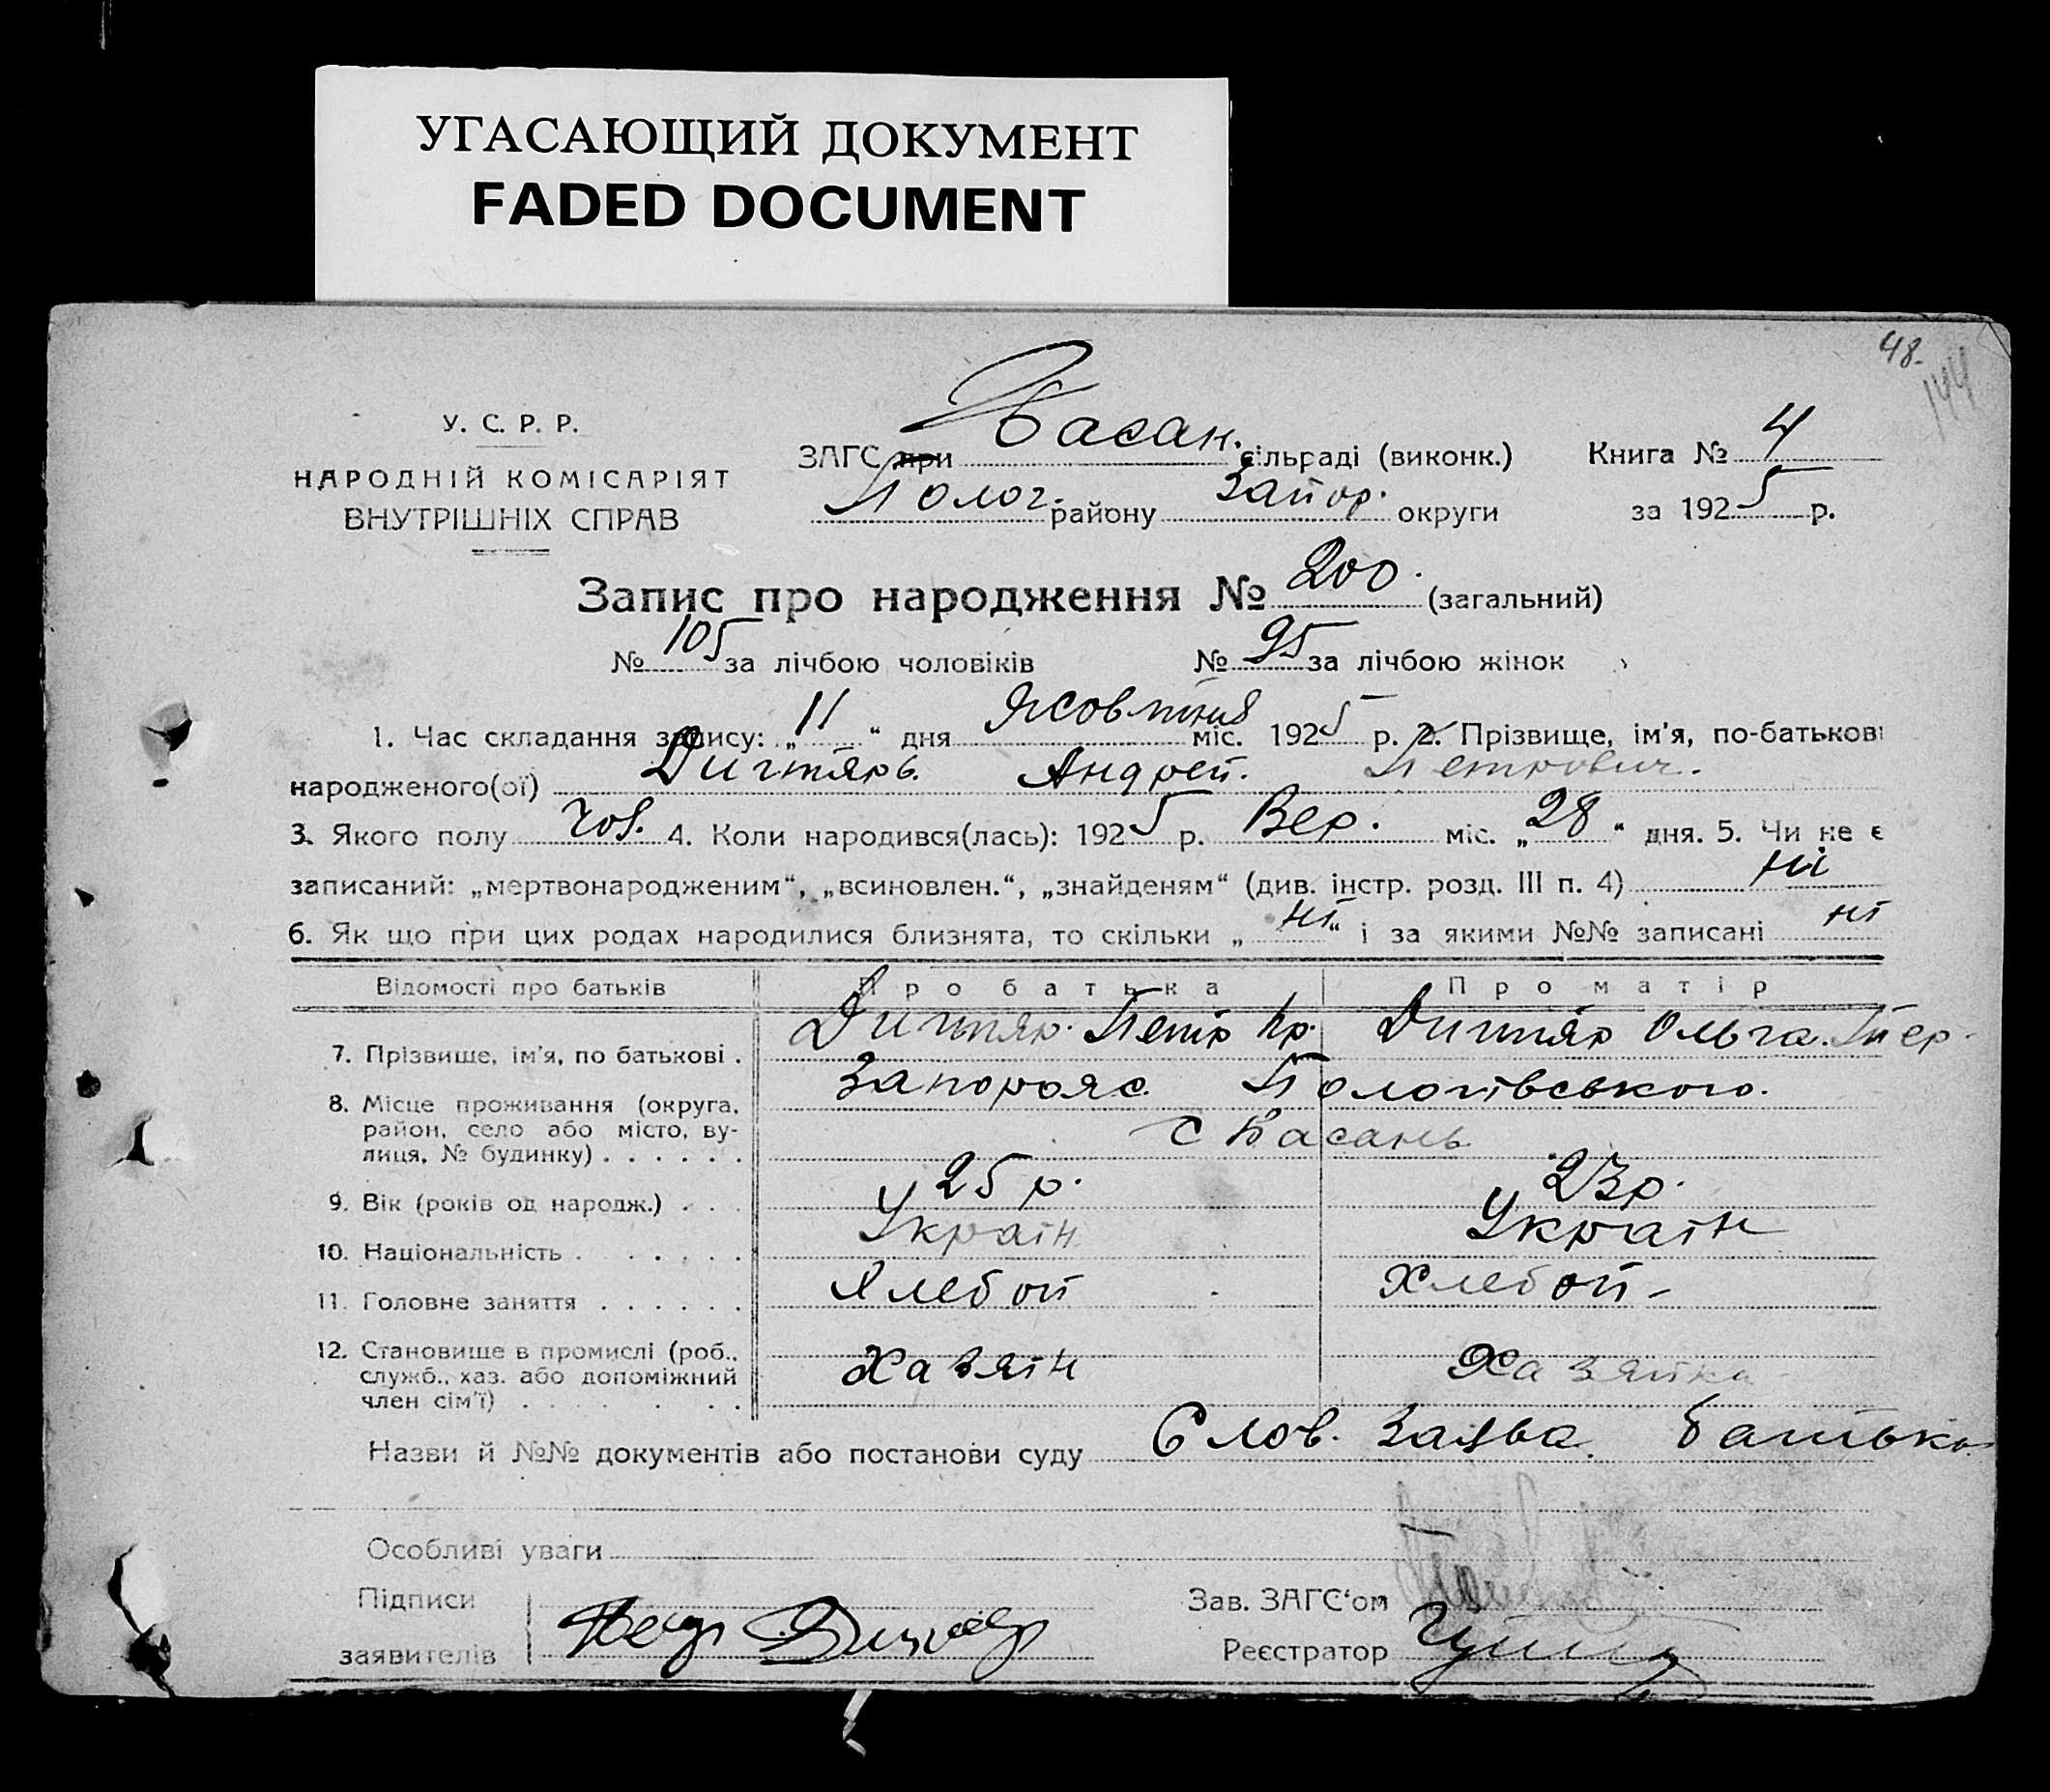 УГАСАЮЩИЙ ДОКУМЕНТ
FADED DOCUMENT
48.
144
У. С. Р. Р.
НАРОДНІЙ КОМІСАРІЯТ
ВНУТРІШНІХ СПРАВ
ЗАГС при Басан. сільраді (виконк.)
Полог. району Запор. округи
Книга № 4
за 1925 р.
Запис про народження № 200. (загальний)
№ 105 за лічбою чоловіків № 95 за лічбою жінок
1. Час складання запису: „ 11 “ дня Жовтня міс. 1925 р. 2. Прізвище, ім'я, по-батькові
народженого(ої) Дигтярь. Андрей. Петрович.
3. Якого полу чол. 4. Коли народився(лась): 1925 р. Вер. міс. „ 28 “ дня. 5. Чи не є
записаний: „мертвонародженим“, „всиновлен.“, „знайденям“ (див. інстр. розд. III п. 4) ні
6. Як що при цих родах народилися близнята, то скільки „ ні “ і за якими №№ записані ні
Відомості про батьків Про батька Про матір
7. Прізвище, ім'я, по батькові . Дигтяр. Петр Дигтяр Ольга.
8. Місце проживання (округа, Запорож. Пологівського.
район, село або місто, ву- с Басань
лиця, № будинку) . . . . . .
9. Вік (років од народж.) . . . 25 р. 23 р.
10. Національність . . . . . Україн Україн
11. Головне заняття . . . . . . Хлебоп Хлебоп -
12. Становище в промислі (роб.,
служб., хаз. або допоміжний Хазяїн Хазяйка
член сім'ї) . . . . . .
Назви й №№ документів або постанови суду Слов. Заява. батька
Особливі уваги
Підписи
заявителів
Зав. ЗАГС'ом
Реєстратор